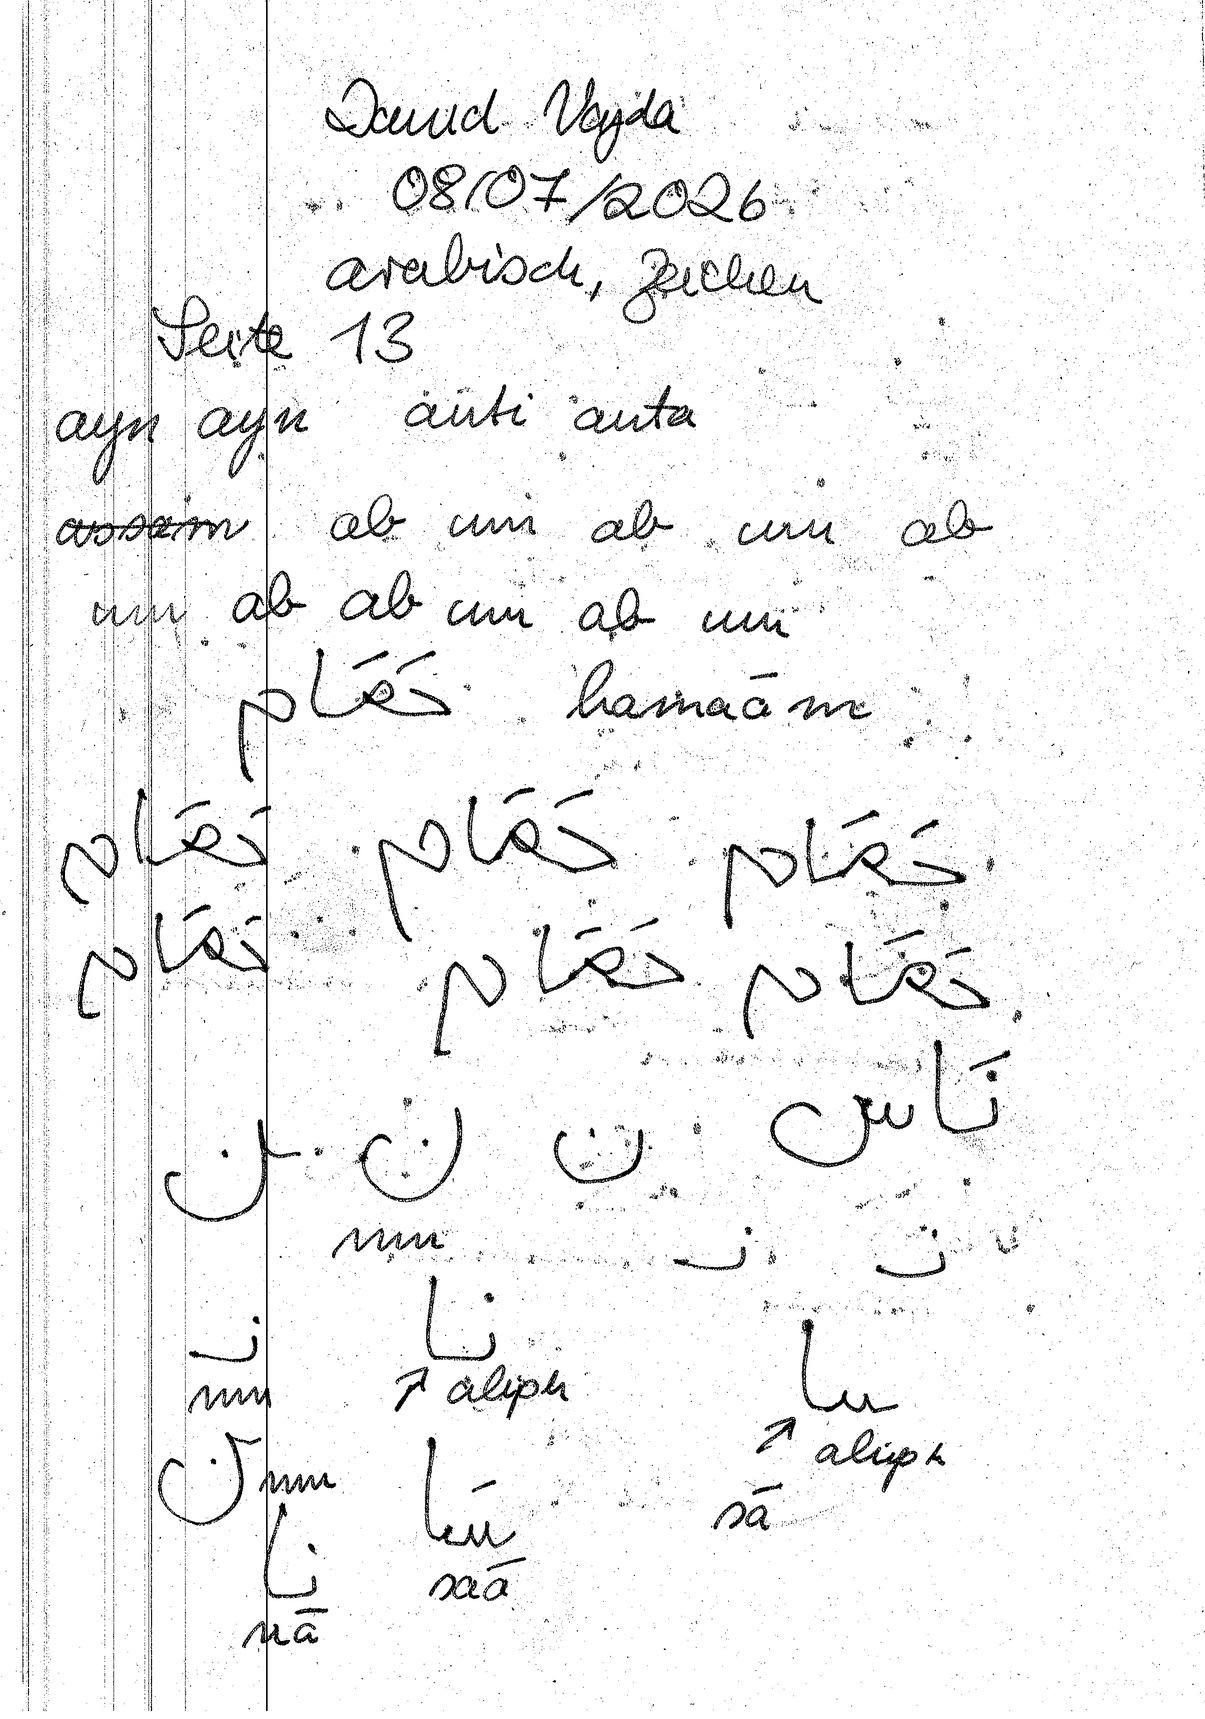 David Vajda
08/07/2026
arabisch, Zeichen
Seite 13
ayn ayn anti anta
assaim ab umi ab umi ab
umi ab ab umi ab umi
حَمَام hamaām
حَمَام حَمَام حَمَام
حَمَام حَمَام حَمَام
نَاس ن ن ـن
nun نـ نـ
نـ نا
nun ↗ aliph سا
↗ aliph
ن nun سَا sā
نا saā
nā